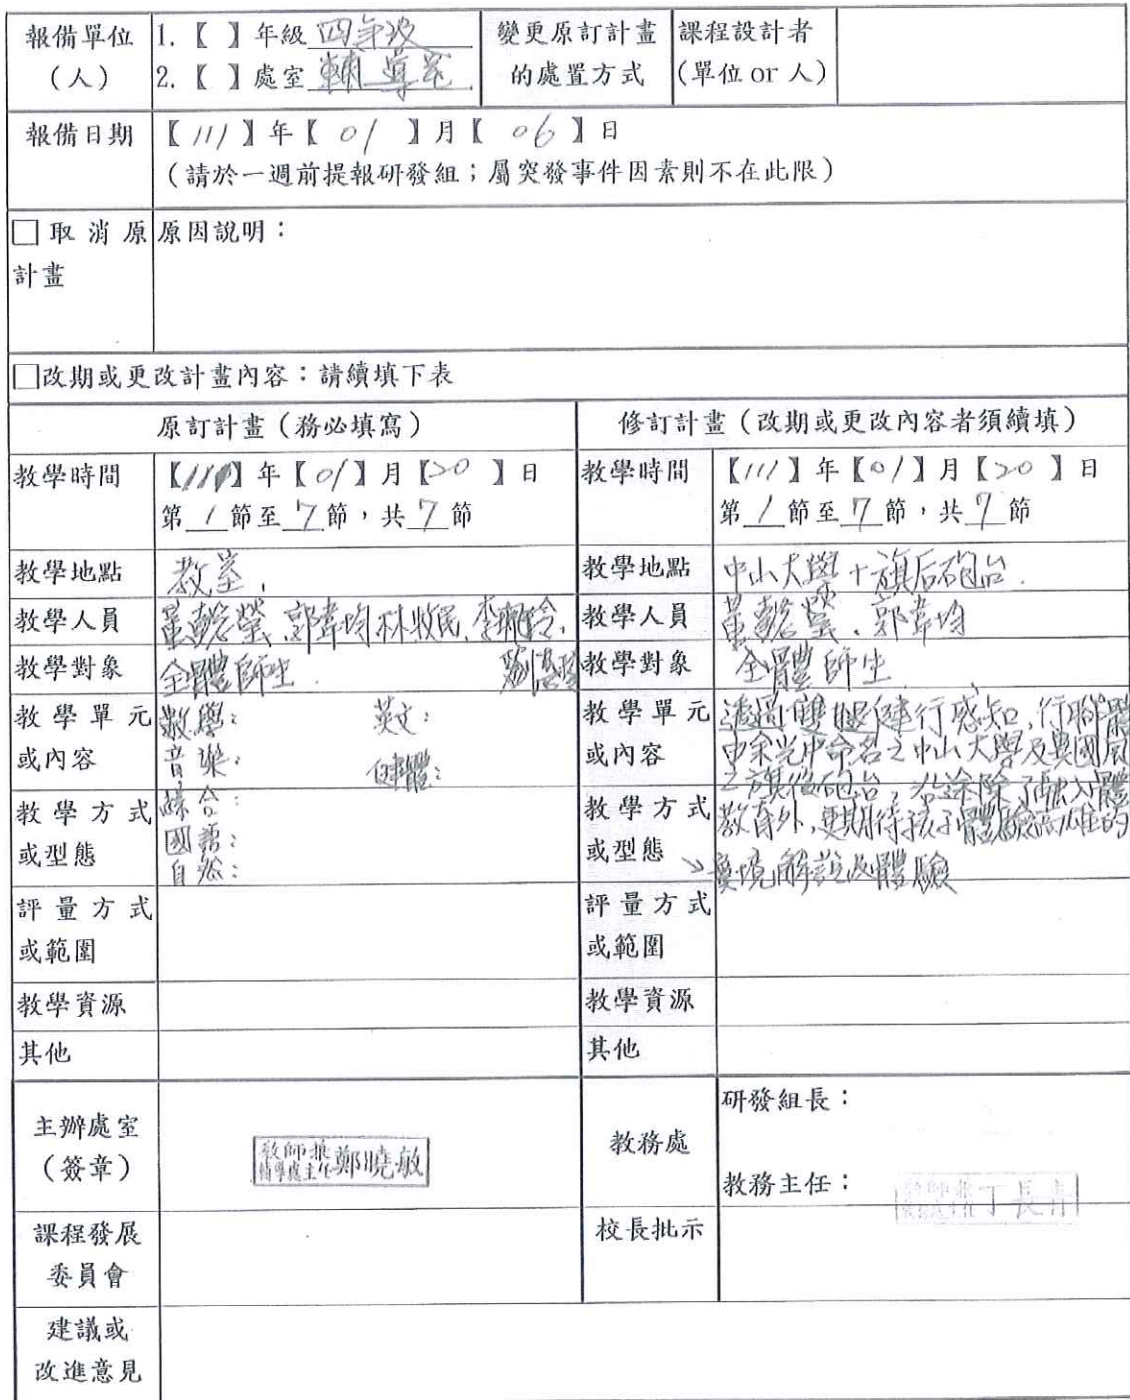 報備單位
(人)
1.【 】年級 四年級
2.【 】處室 輔導室.
變更原訂計畫
的處置方式
課程設計者
(單位 or 人)
報備日期
【 111 】年【 01 】月【 06 】日
(請於一週前提報研發組；屬突發事件因素則不在此限)
□取消原
計畫
原因說明：
□改期或更改計畫內容：請續填下表
原訂計畫(務必填寫)
修訂計畫(改期或更改內容者須續填)
教學時間
【111】年【01】月【20 】日
第 1 節至 7 節，共 7 節
教學時間
【111】年【01】月【20 】日
第 1 節至 7 節，共 7 節
教學地點
教室.
教學地點
中山大學+旗后砲台.
教學人員
郭韋均 林牧民
教學人員
郭韋均
教學對象
全體師生.
教學對象
全體師生
教學單元
或內容
數學： 英文：
音樂： 健體：
教學單元
或內容
透過雙腿健行感知,行
由余光中命名之中山大學及異國風
之旗後砲台,沿途除了融入體
教學方式
或型態
綜合：
國語：
自然：
教學方式
或型態
教育外,更期待孩子體驗高雄的
環境解說及體驗
評量方式
或範圍
評量方式
或範圍
教學資源
教學資源
其他
其他
主辦處室
(簽章)
教師兼
輔導處主任 鄭曉敏
教務處
研發組長：
教務主任：
丁長青
課程發展
委員會
校長批示
建議或
改進意見